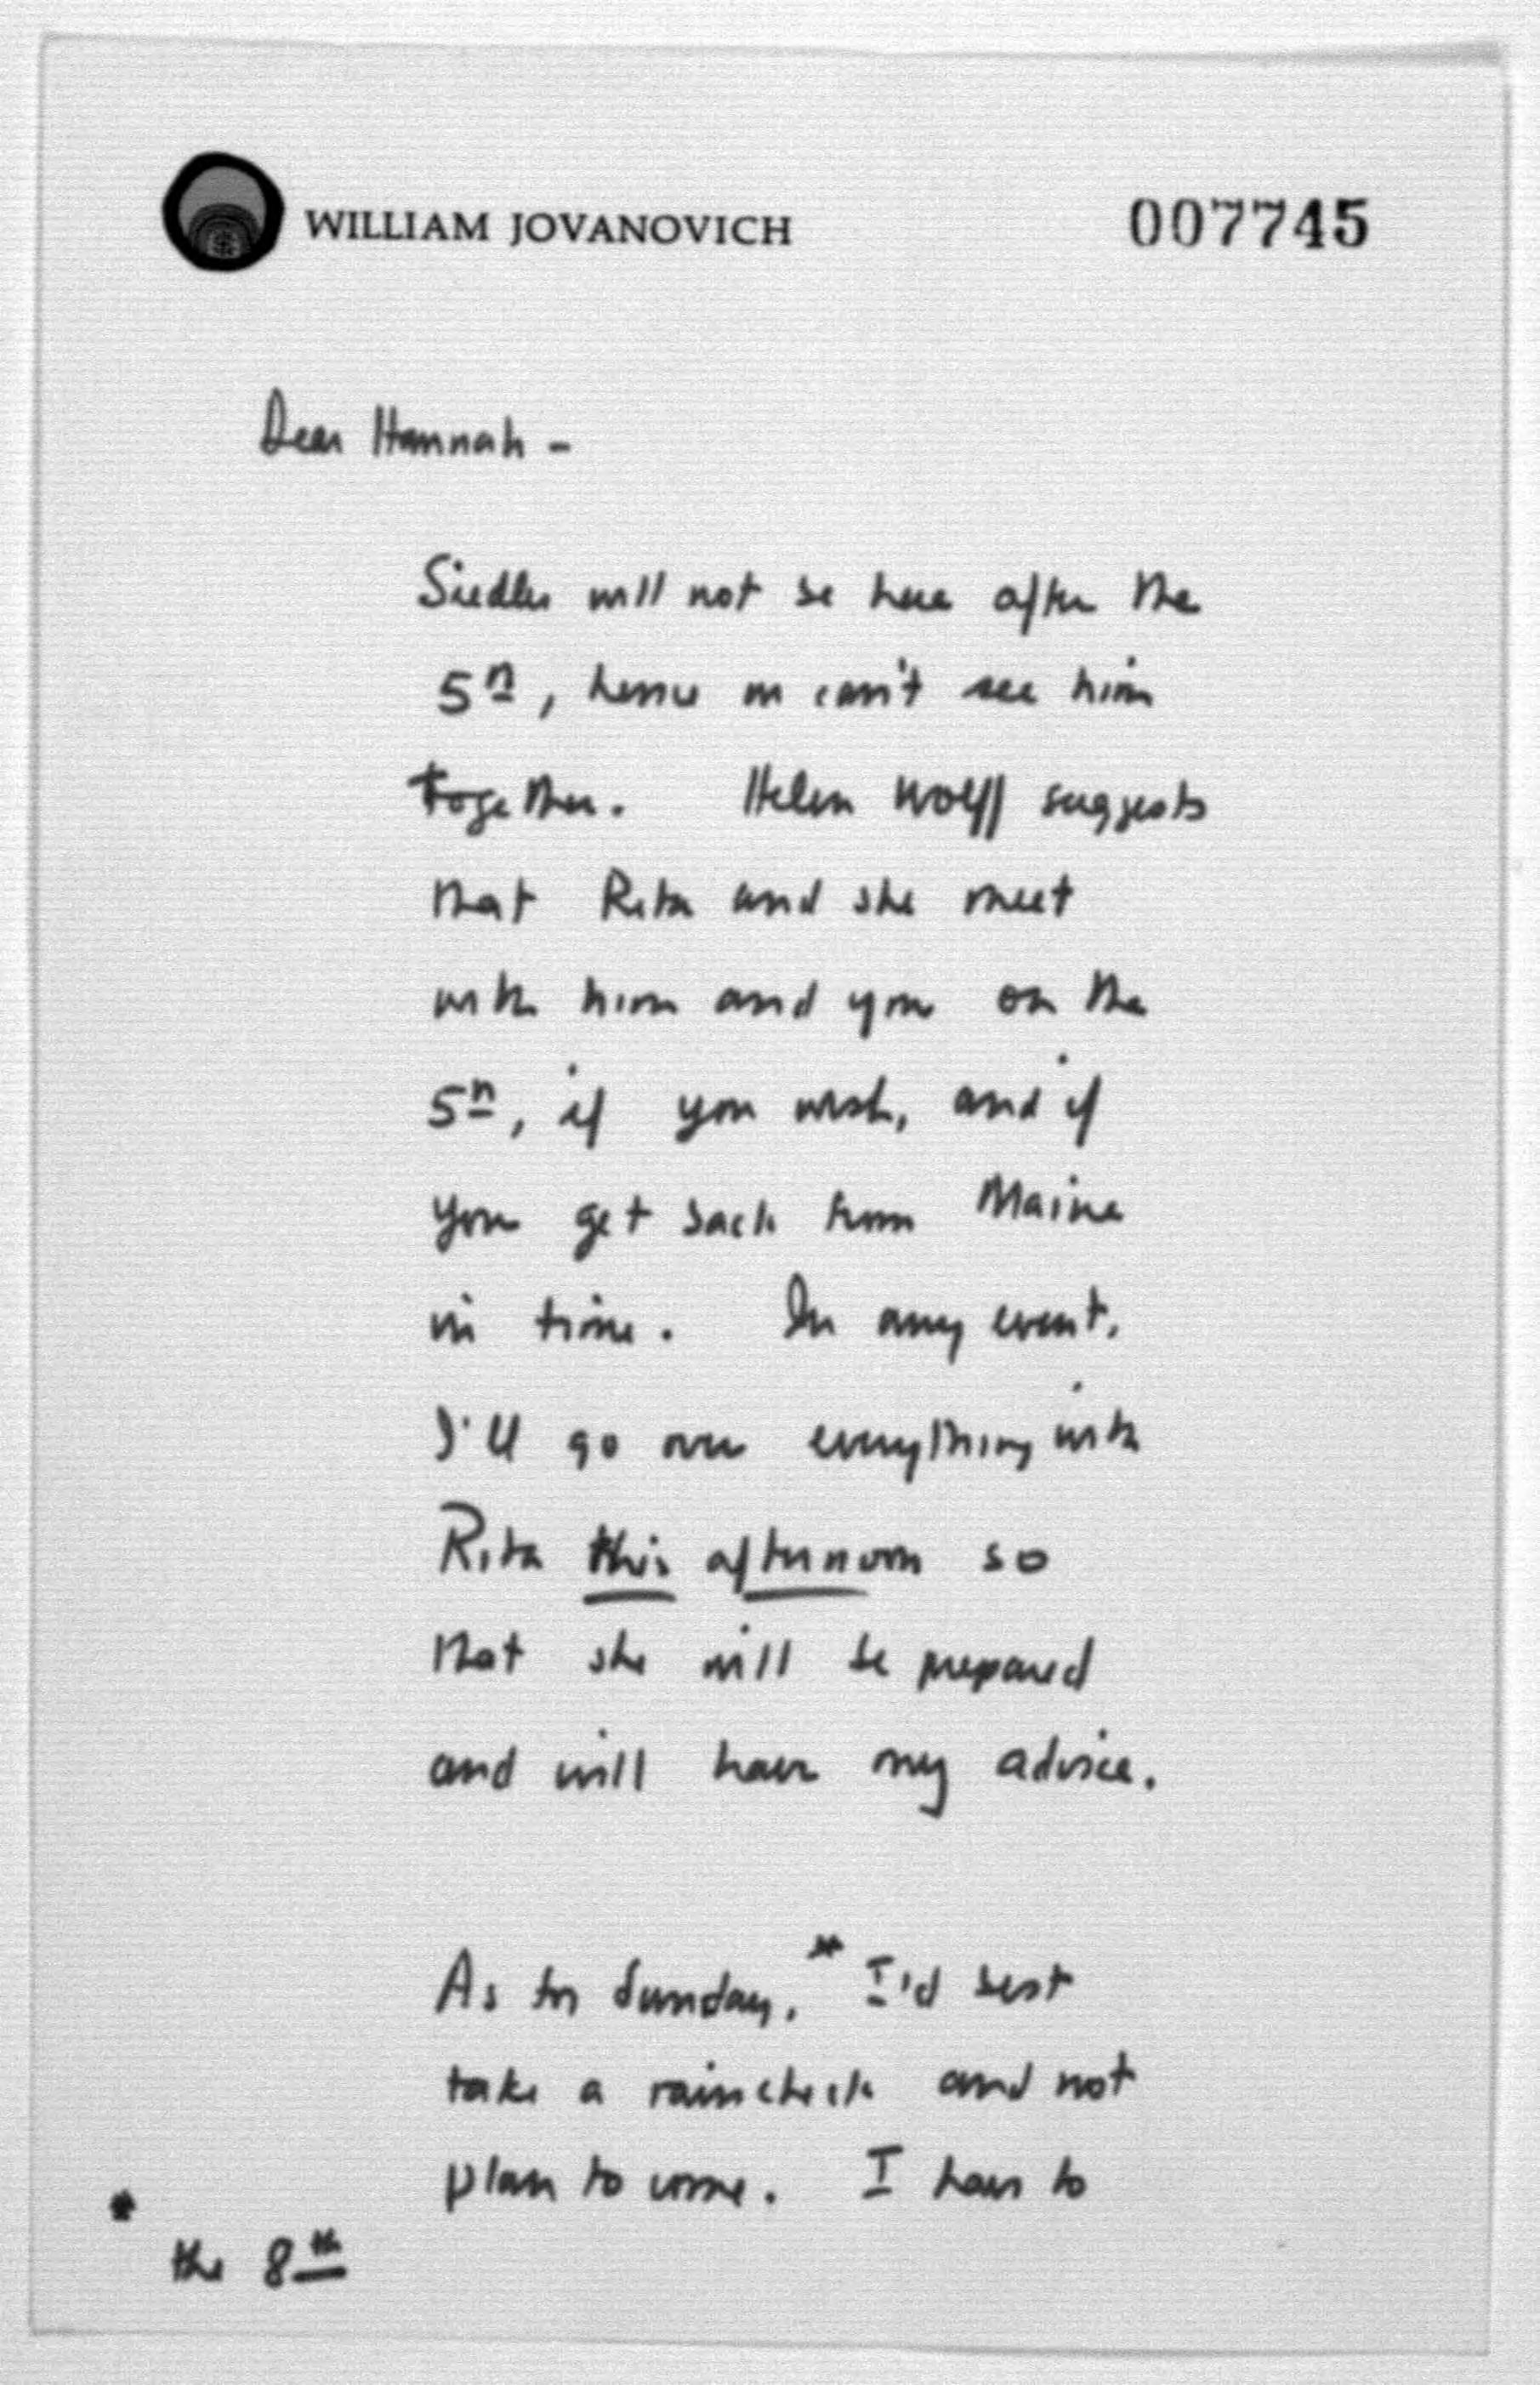 WILLIAM JOVANOVICH
007745
Dear Hannah -
Siedler will not be here after the
5th, hence we can't see him
together. Helen Wolff suggests
that Rita and she meet
with him and you on the
5th, if you wish, and if
you get back from Maine
in time. In any event,
I'll go over everything with
Rita this afternoon so
that she will be prepared
and will have my advice.
As to Sunday,* I'd best
take a raincheck and not
plan to come. I have to
*
the 8th